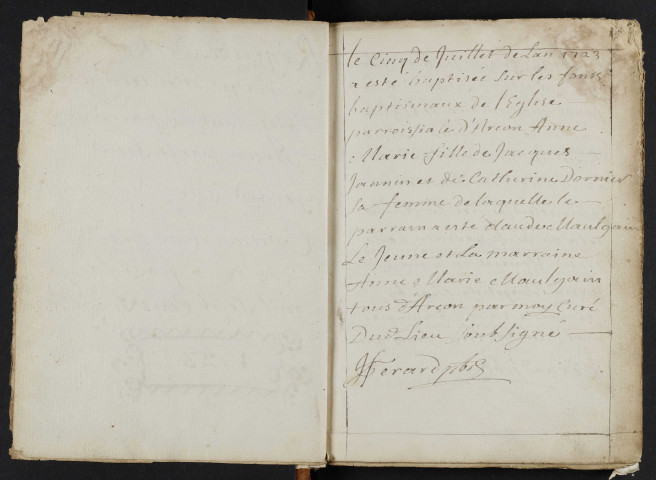 le Cinq de Juillet de Lan 1723
a esté baptisée sur les fons
baptismaux de l'Eglise
parroissiale d'Arcon Anne
Marie fille de Jacques
Jannin et de Catherine Dornier
sa femme de laquelle le
parrain a esté Claude Maulgain
Le Jeune et La marraine
Anne Marie Maulgain
tous d'Arcon par moy Curé
Dud Lieu soubsigné
Pbr